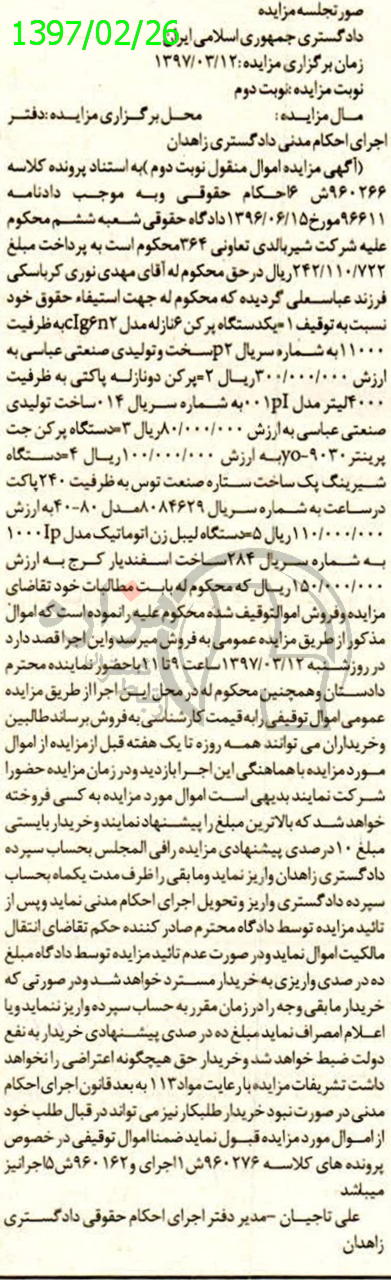 صورتجلسه مزایده
1397/02/26
دادگستری جمهوری اسلامی ایران
زمان برگزاری مزایده: ۱۳۹۷/۰۳/۱۲
نوبت مزایده: نوبت دوم
مال مزایده: محل برگزاری مزایده: دفتر
اجرای احکام مدنی دادگستری زاهدان
(آگهی مزایده اموال منقول نوبت دوم) به استناد پرونده کلاسه
۹۶۰۲۶۶ش ۶احکام حقوقی وبه موجب دادنامه
۹۶۶۱۱مورخ۱۳۹۶/۰۶/۱۵دادگاه حقوقی شعبه ششم محکوم
علیه شرکت شیربالدی تعاونی ۳۶۴محکوم است به پرداخت مبلغ
۲۴۲/۱۱۰/۷۲۲ریال درحق محکوم له آقای مهدی نوری کرباسکی
فرزند عباسعلی گردیده که محکوم له جهت استیفاء حقوق خود
نسبت به توقیف ۱=یکدستگاه پرکن ۶نازله مدل cIg6n2به ظرفیت
۱۱۰۰۰به شماره سریال p۲سخت وتولیدی صنعتی عباسی به
ارزش ۳۰۰/۰۰۰/۰۰۰ریال ۲=پرکن دونازله پاکتی به ظرفیت
۴۰۰۰لیتر مدل ۰۰۱pIبه شماره سریال ۰۱۴ساخت تولیدی
صنعتی عباسی به ارزش ۸۰/۰۰۰/۰۰۰ریال ۳=دستگاه پرکن جت
پرینتر yo-۹۰۳۰به ارزش ۱۰۰/۰۰۰/۰۰۰ریال ۴=دستگاه
شیرینگ پک ساخت ستاره صنعت توس به ظرفیت ۲۴۰پاکت
درساعت به شماره سریال ۸۰۸۴۶۲۹مدل ۸۰-۴۰به ارزش
۱۱۰/۰۰۰/۰۰۰ریال ۵=دستگاه لیبل زن اتوماتیک مدل ۱۰۰۰Ip
به شماره سریال ۲۸۴ساخت اسفندیار کرج به ارزش
۱۵۰/۰۰۰/۰۰۰ریال که محکوم له بابت مطالبات خود تقاضای
مزایده وفروش اموالتوقیف شده محکوم علیه رانموده است که اموال
مذکور از طریق مزایده عمومی به فروش میرسد واین اجرا قصد دارد
در روز شنبه ۱۳۹۷/۰۳/۱۲ساعت ۹تا ۱۱باحضور نماینده محترم
دادستان وهمچنین محکوم له در محل این اجرا از طریق مزایده
عمومی اموال توقیفی رابه قیمت کارشناسی به فروش برساند طالبین
وخریداران می توانند همه روزه تا یک هفته قبل از مزایده از اموال
مورد مزایده با هماهنگی این اجرا بازدید ودر زمان مزایده حضورا
شرکت نمایند بدیهی است اموال مورد مزایده به کسی فروخته
خواهد شد که بالاترین مبلغ را پیشنهاد نمایند وخریدار بایستی
مبلغ ۱۰درصدی پیشنهادی مزایده رافی المجلس بحساب سپرده
دادگستری زاهدان واریز نماید ومابقی را ظرف مدت یکماه بحساب
سپرده دادگستری واریز وتحویل اجرای احکام مدنی نماید وپس از
تائید مزایده توسط دادگاه محترم صادر کننده حکم تقاضای انتقال
مالکیت اموال نماید ودر صورت عدم تائید مزایده توسط دادگاه مبلغ
ده در صدی واریزی به خریدار مسترد خواهد شد ودر صورتی که
خریدار مابقی وجه را در زمان مقرر به حساب سپرده واریز ننماید ویا
اعلام امصراف نماید مبلغ ده در صدی پیشنهادی خریدار به نفع
دولت ضبط خواهد شد وخریدار حق هیچگونه اعتراضی را نخواهد
داشت تشریفات مزایده با رعایت مواد۱۱۳ به بعد قانون اجرای احکام
مدنی در صورت نبود خریدار طلبکار نیز می تواند در قبال طلب خود
از اموال مورد مزایده قبول نماید ضمنا اموال توقیفی در خصوص
پرونده های کلاسه ۹۶۰۲۷۶ش۱اجرای و۹۶۰۱۶۲ش۵اجرانیز
میباشد
علی تاجیان -مدیر دفتر اجرای احکام حقوقی دادگستری
زاهدان